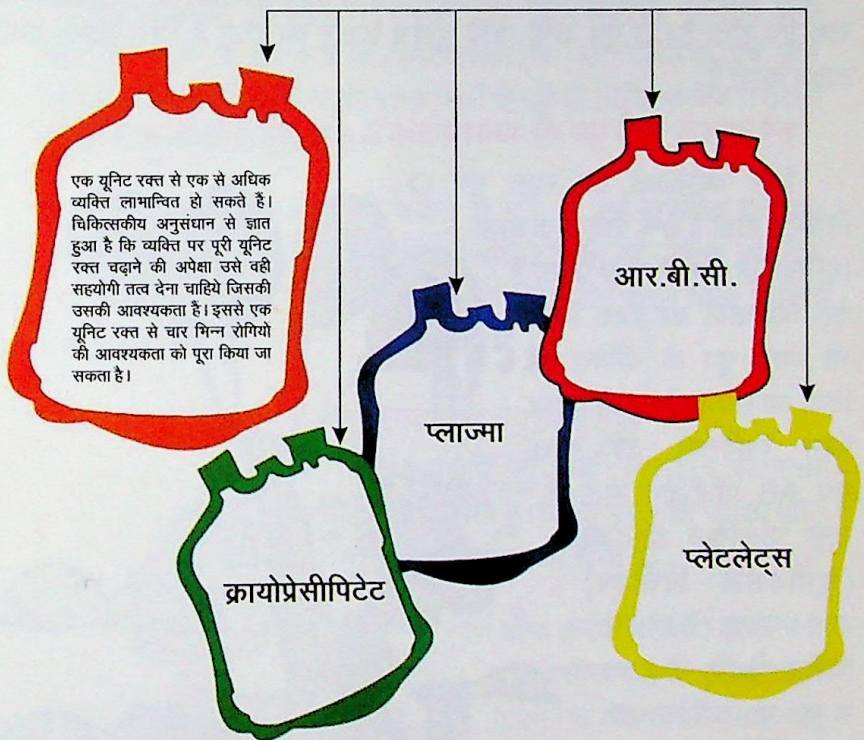 एक यूनिट रक्त से एक से अधिक
व्यक्ति लाभान्वित हो सकते हैं।
चिकित्सकीय अनुसंधान से ज्ञात
हुआ है कि व्यक्ति पर पूरी यूनिट
रक्त चढ़ाने की अपेक्षा उसे वही
सहयोगी तत्व देना चाहिये जिसकी
उसकी आवश्यकता हैं। इससे एक
यूनिट रक्त से चार भिन्न रोगियो
की आवश्यकता को पूरा किया जा
सकता है।
आर.बी.सी.
प्लाज्मा
प्लेटलेट्स
क्रायोप्रेसीपिटेट